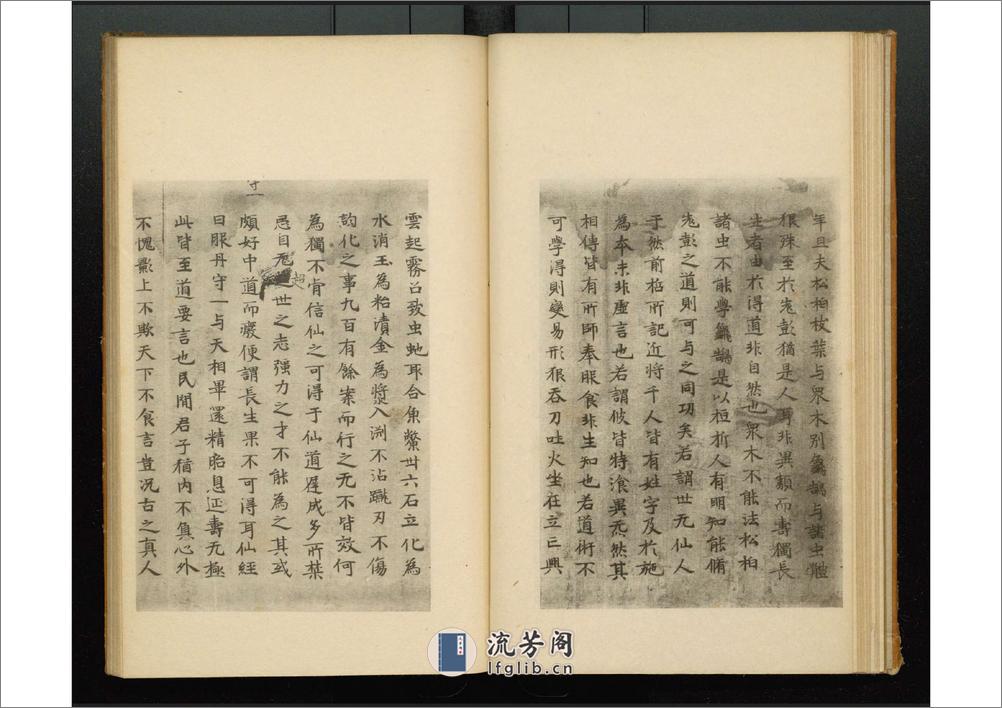 年且夫松柏枝葉与衆木別龜鵠与諸虫體
狠殊至於老彭猶是人耳非異類而壽獨長
生者由於得道非自然也衆木不能法松柏
諸虫不能學龜鵠是以桓折人有明知能脩
老彭之道則可与之同功矣若謂世无仙人
于然前栢所記近将千人皆有姓字及於施
為本未非虚言也若謂彼皆特飡異炁然其
相傳皆有所師奉服食非生知也若道術不
可學得則變易形狠吞刀吐火坐在立亡興
雲起霧召致虫虵耴合魚鱉卅六石立化為
水消玉為粭漬金為漿入渕不沾蹴刃不傷
之事九百有餘案而行之无不皆效何
為獨不肯信仙之可得于仙道遲成多所禁
愚自无超世之志强力之才不能為之其或
頗好中道而癈便謂長生果不可得耳仙經
曰服丹守一与天相畢還精胎息延壽无極
此皆至道要言也民間君子猶内不負心外
不愧影上不欺天下不食言豈況古之真人
守一
流芳阁
lfglib.cn